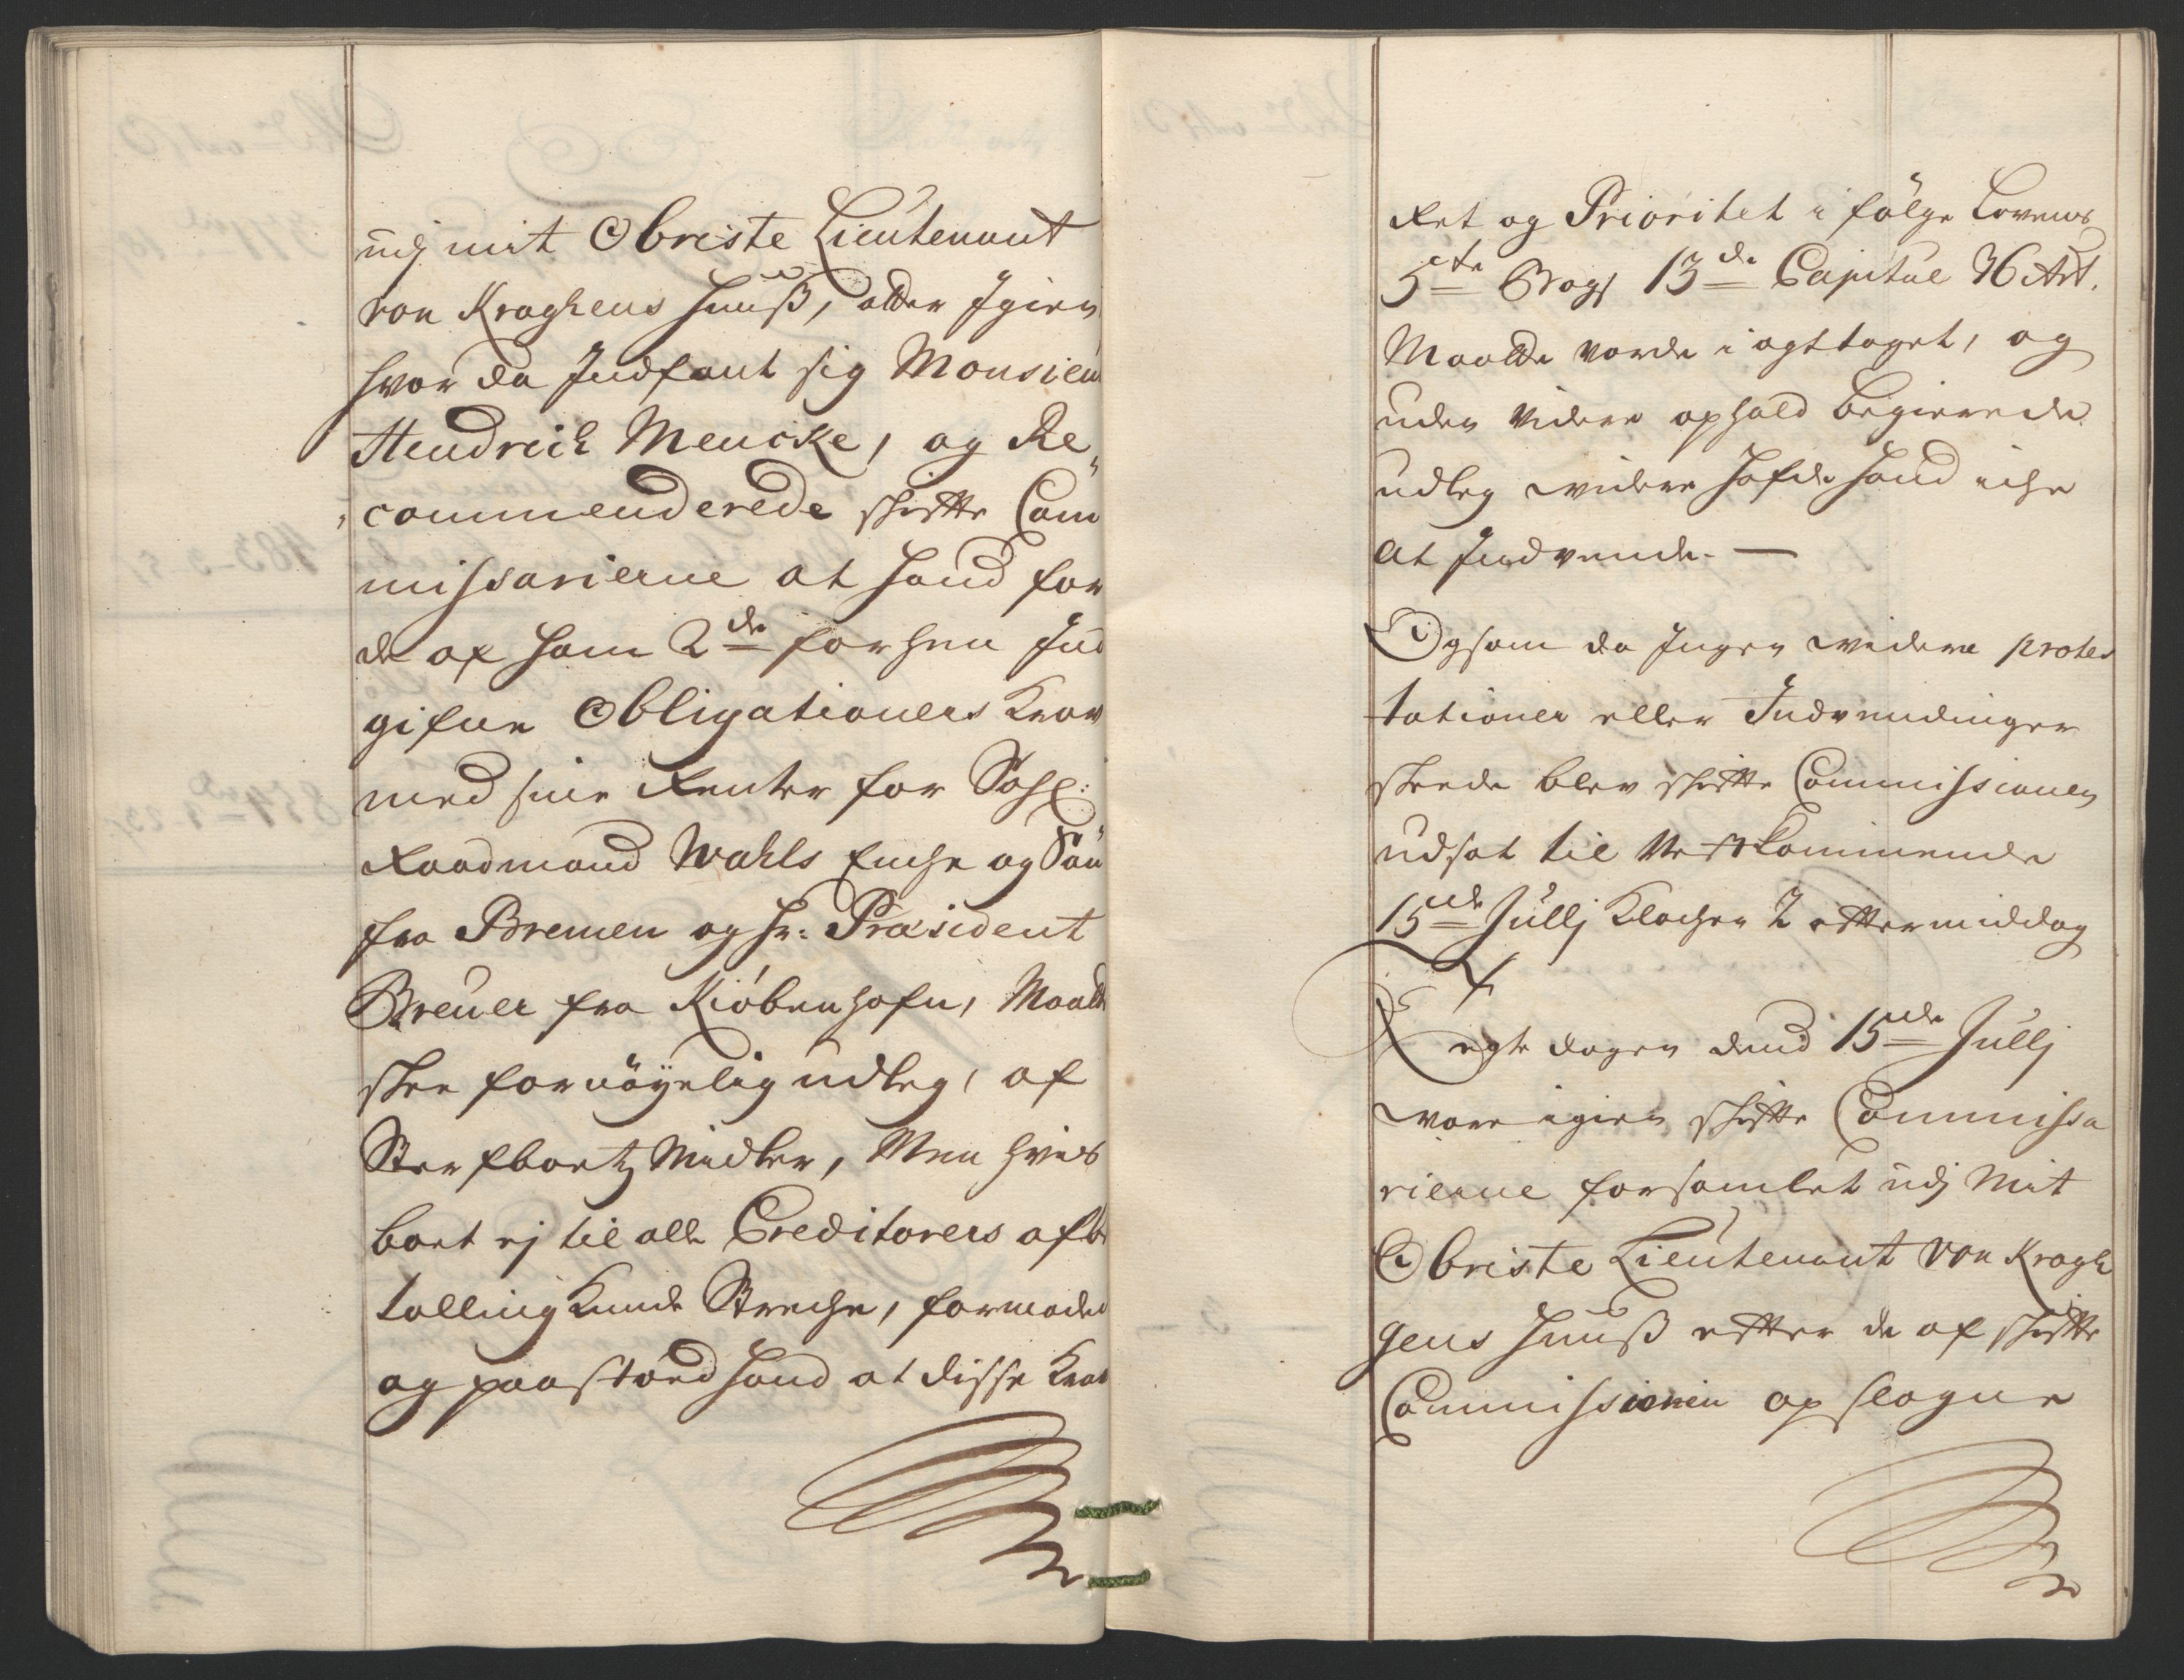 udj mit Obriste Lieutenant
von Kraghens Huuß, atter Igien
hvor da Indfant sig Monsieu
Hendrich Mencke, og Re„
„commenderede skifte Com
missarierne at hand for
de af ham 2de forhen Ind
gifne Obligationers Krav
med sine Renter for Sahl:
Raadmand Wahls Enche og Søn
fra Bremen og Hr: Præsident
Breuer fra Kiöbenhafn, Maatte
skee fornöyelig udleg, af
Sterfboetz Midler, Men hvis
boet ej til alle Creditorers afbe
talling Kunde Streche, formode
og paastoed hand at disse Krav
Ret og Prioritet i fölge Lovens
5te Bogs 13de Capitul 36 Art.
Maatte vorde i agttaget, og
uden videre ophold begierede
udleg widere hafde hand iche
At Indvende. —
Ogsom da Ingen widere protes
tationer eller Indvendinger
skeede blev skifte Commissionen
udsat til Nestkommende
15de Jullj Klochen 2 eftermiddag
Negte dagen dend 15de Jullj
vare igien skifte Commissa
rierne forsamlet udj Mit
Obriste Lieutenant von Kragh
gens Huuß efter de af skifte
Commissionen opslagne